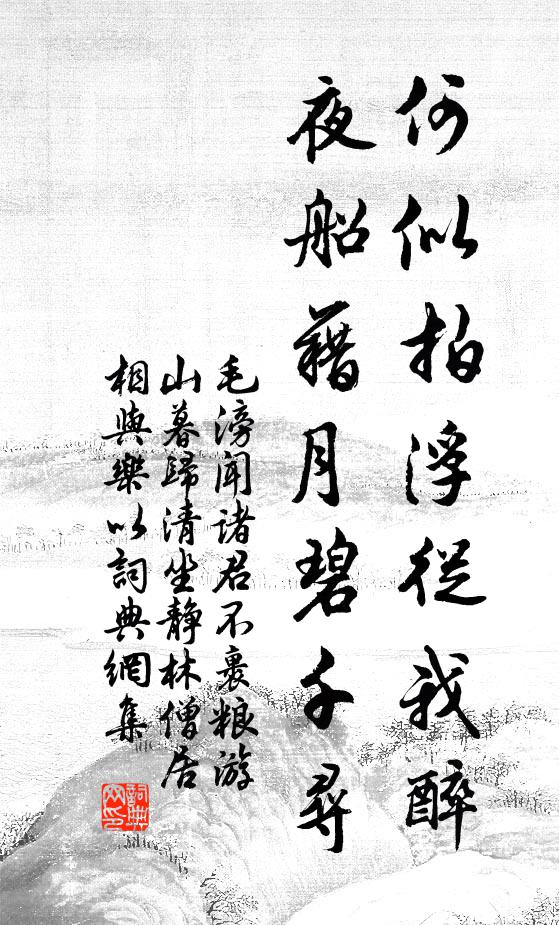 何似拍浮從我醉
夜船藉月碧千尋
毛滂聞諸君不裹粮游
山暮歸清坐静林僧居
相與樂以詞典網集
詞典網印